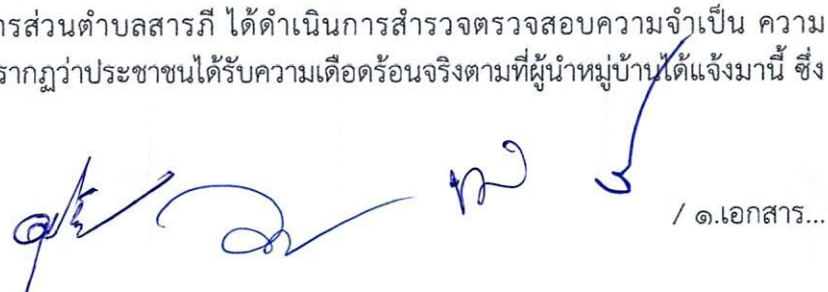 รส่วนตำบลสารภี ได้ดำเนินการสำรวจตรวจสอบความจำเป็น ความ
รากฏว่าประชาชนได้รับความเดือดร้อนจริงตามที่ผู้นำหมู่บ้านได้แจ้งมานี้ ซึ่ง
/ ๑.เอกสาร...